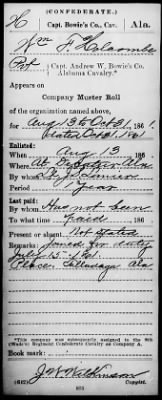 (CONFEDERATE.)
H Capt. Bowie's Co., Cav. Ala.
Wm F Holcombe
Pvt Capt. Andrew W. Bowie's Co.
Alabama Cavalry.*
Appears on
Company Muster Roll
of the organization named above,
for Aug 13 to Oct 31, 1861.
dated Oct 31, 1861
Enlisted:
When Aug 3, 186
Where At
By whom
Period 1 year
Last paid:
By whom Has not been
To what time paid, 186
Present or absent Not Stated
Remarks: Joined for duty
July 15, 1861
Place, Talladega Ala
*This company was subsequently assigned to the 8th
(Wade's) Regiment Confederate Cavalry as Company A.
Book mark:
(642) Copyist.